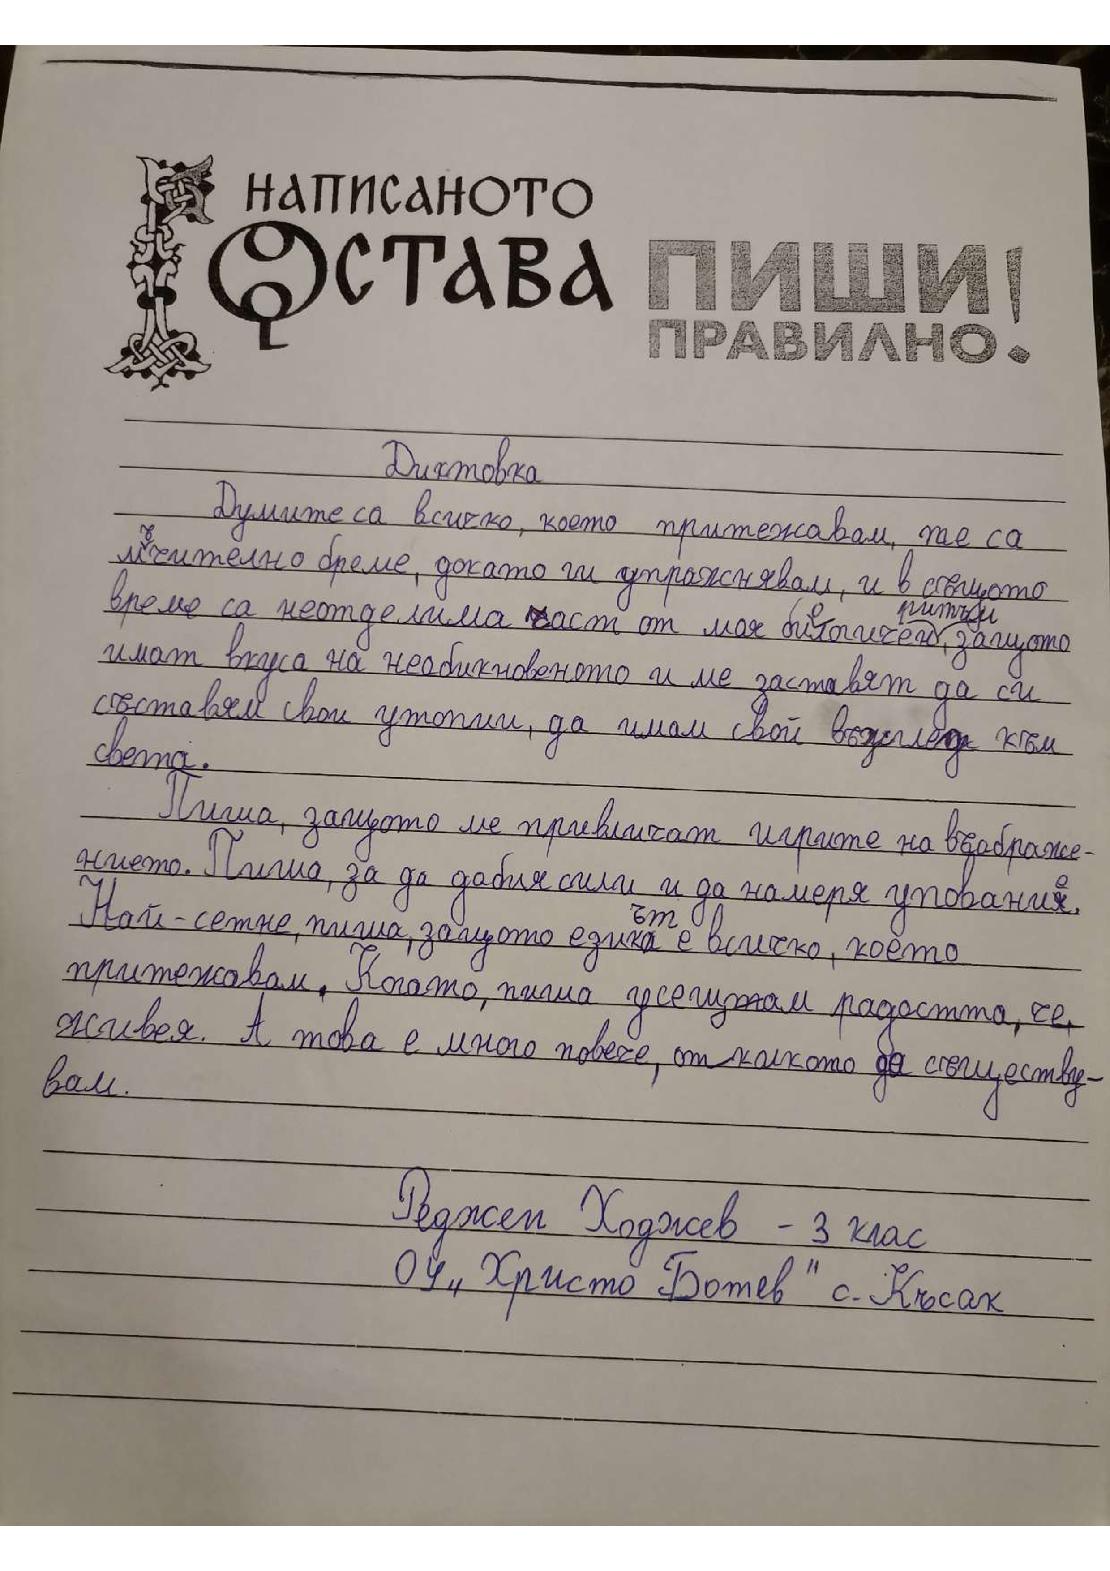 НАПИСАНОТО
ОСТАВА
ПИШИ!
ПРАВИЛНО.
Диктовка
Думите са всичко, което притежавам, те са
мъчително бреме, докато ги упражнявам, и в същото
време са неотделима част от моя биологичен ритъм, защото
имат вкуса на необикновеното и ме заставят да си
съставям свои утопии, да имам свой възглед към
света.
Пиша, защото ме привличат игрите на въображе-
нието. Пиша, за да добия сили и да намеря упование.
Най-сетне, пиша, защото езикът е всичко, което
притежавам. Когато, пиша усещам радостта, че,
живея. А това е много повече, от колкото да съществу-
вам.
Реджеп Ходжев - 3 клас
ОУ „Христо Ботев" с. Късак